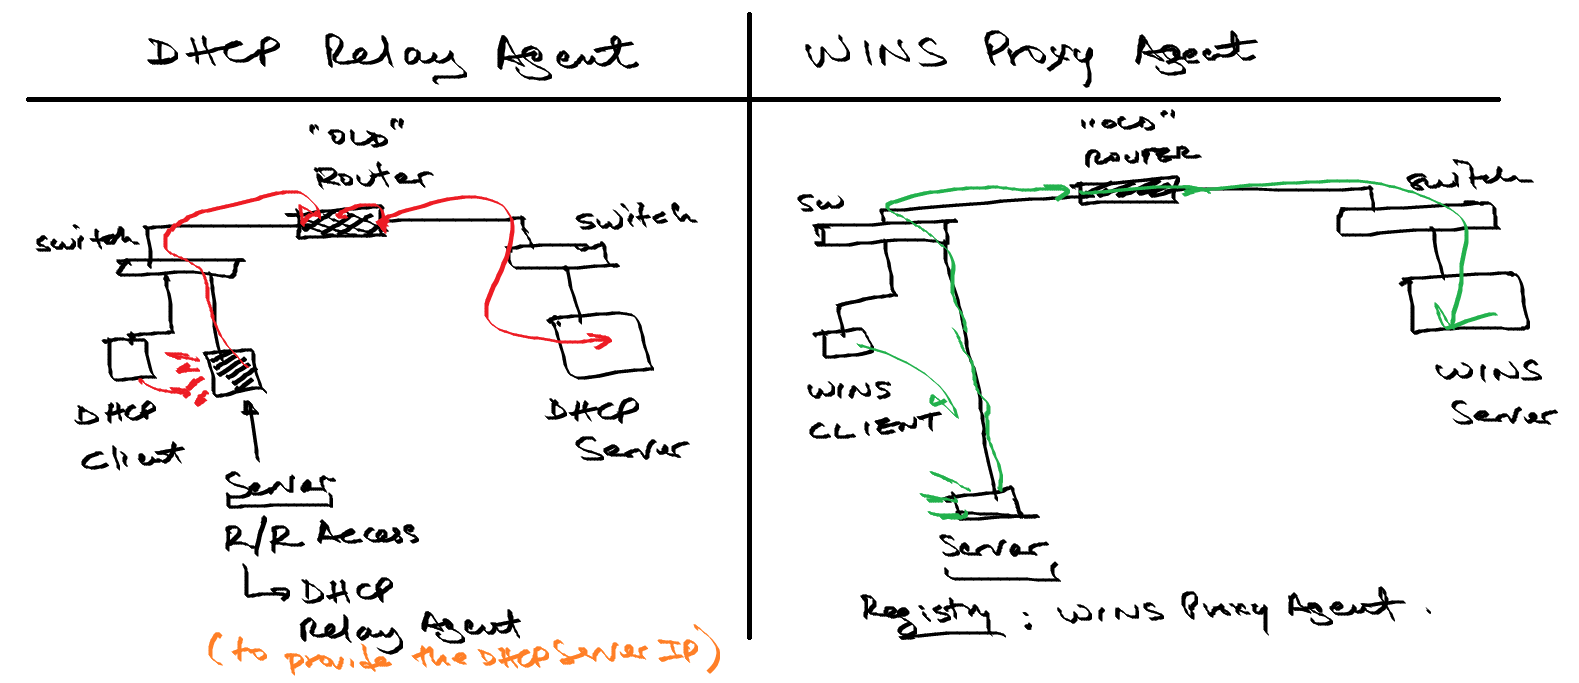 DHCP Relay Agent
"OLD"
Router
switch
switch
DHCP
Client
DHCP
Server
Server
R/R Access
DHCP
Relay Agent
(to provide the DHCP Server IP)
WINS Proxy Agent
"OLD"
ROUTER
SW
switch
WINS
CLIENT
WINS
Server
Server
Registry : WINS Proxy Agent.